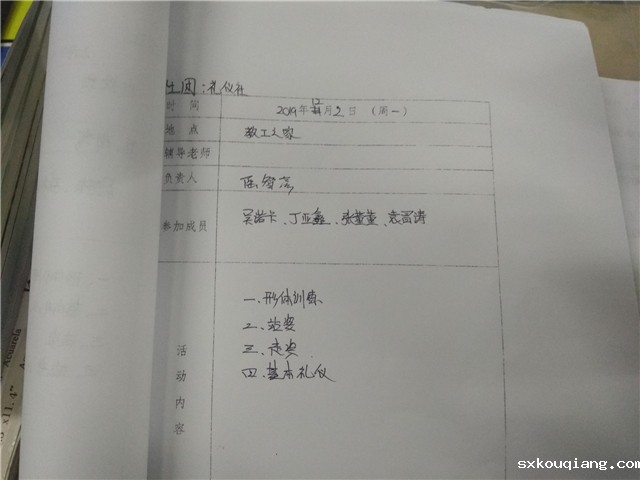 社团:礼仪社
时间 2019年12月2日（周一）
地点 教工之家
辅导老师
负责人
参加成员 吴诺卡、丁亚鑫、张董董、袁雷涛
活动内容
一.形体训练
二.站姿
三.走姿
四.基本礼仪
Acuarela
sxkouqiang.com